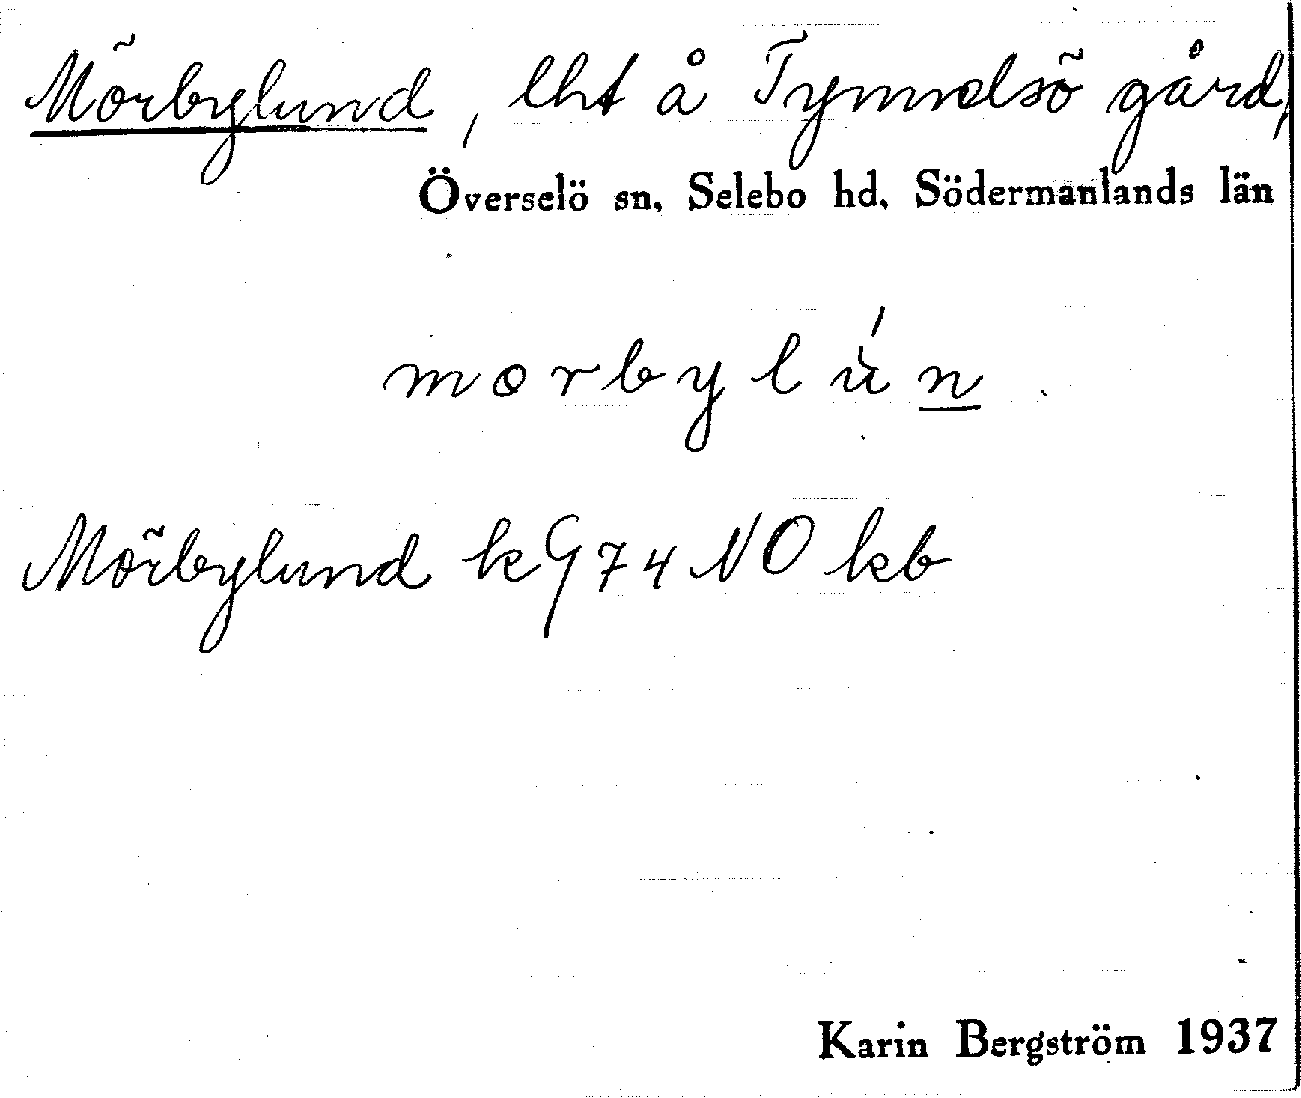 Mörbylund, lht å Tynnelsö gård,
Överselö sn, Selebo hd, Södermanlands län
mørbylún
Mörbylund kG74 NO kb
Karin Bergström 1937